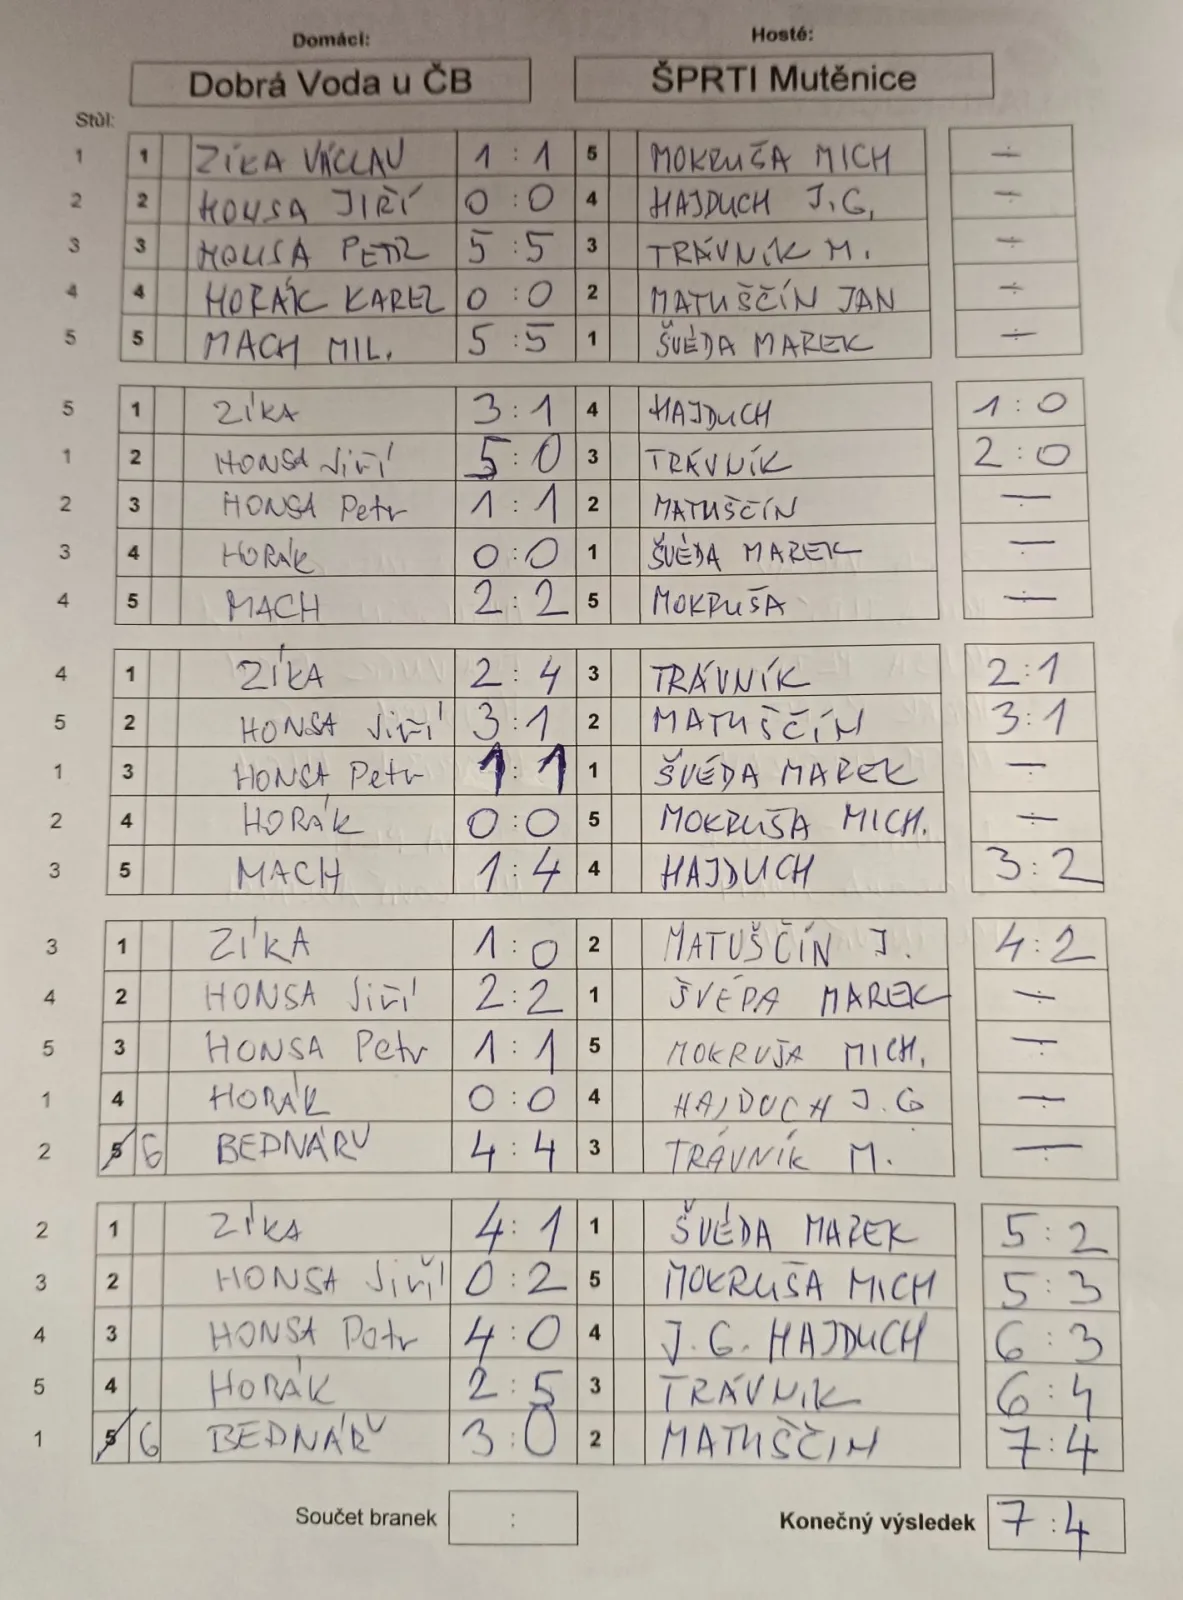 Domácí: Hosté:
Dobrá Voda u ČB ŠPRTI Mutěnice
Stůl:
1 1 ZÍKA VÁCLAV 1 : 1 5 MOKRUŠA MICH ÷
2 2 HONSA JIŘÍ 0 : 0 4 HAJDUCH J.G. ÷
3 3 HONSA PETR 5 : 5 3 TRÁVNÍK M. ÷
4 4 HORÁK KAREL 0 : 0 2 MATUŠČÍN JAN ÷
5 5 MACH MIL. 5 : 5 1 ŠVÉDA MAREK ÷
5 1 ZÍKA 3 : 1 4 HAJDUCH 1 : 0
1 2 HONSA Jiří 5 : 0 3 TRÁVNÍK 2 : 0
2 3 HONSA Petr 1 : 1 2 MATUŠČÍN ÷
3 4 HORÁK 0 : 0 1 ŠVÉDA MAREK ÷
4 5 MACH 2 : 2 5 MOKRUŠA ÷
4 1 ZÍKA 2 : 4 3 TRÁVNÍK 2 : 1
5 2 HONSA Jiří 3 : 1 2 MATUŠČÍN 3 : 1
1 3 HONSA Petr 1 : 1 1 ŠVÉDA MAREK ÷
2 4 HORÁK 0 : 0 5 MOKRUŠA MICH. ÷
3 5 MACH 1 : 4 4 HAJDUCH 3 : 2
3 1 ZÍKA 1 : 0 2 MATUŠČÍN J. 4 : 2
4 2 HONSA Jiří 2 : 2 1 ŠVÉDA MAREK ÷
5 3 HONSA Petr 1 : 1 5 MOKRUŠA MICH. ÷
1 4 HORÁK 0 : 0 4 HAJDUCH J.G ÷
2 5 6 BEDNÁŘ 4 : 4 3 TRÁVNÍK M. ÷
2 1 ZÍKA 4 : 1 1 ŠVÉDA MAREK 5 : 2
3 2 HONSA Jiří 0 : 2 5 MOKRUŠA MICH 5 : 3
4 3 HONSA Petr 4 : 0 4 J.G. HAJDUCH 6 : 3
5 4 HORÁK 2 : 5 3 TRÁVNIK 6 : 4
1 5 6 BEDNÁŘ 3 : 0 2 MATUŠČIN 7 : 4
Součet branek : Konečný výsledek 7 : 4